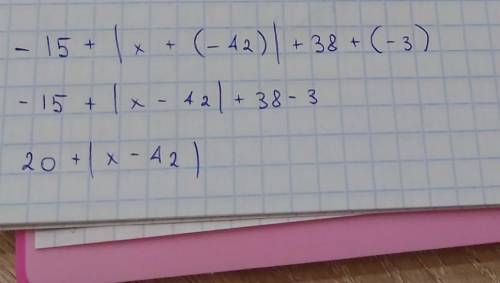 - 15 + | x + (- 42) | + 38 + (- 3)
- 15 + | x - 42 | + 38 - 3
20 + | x - 42 |